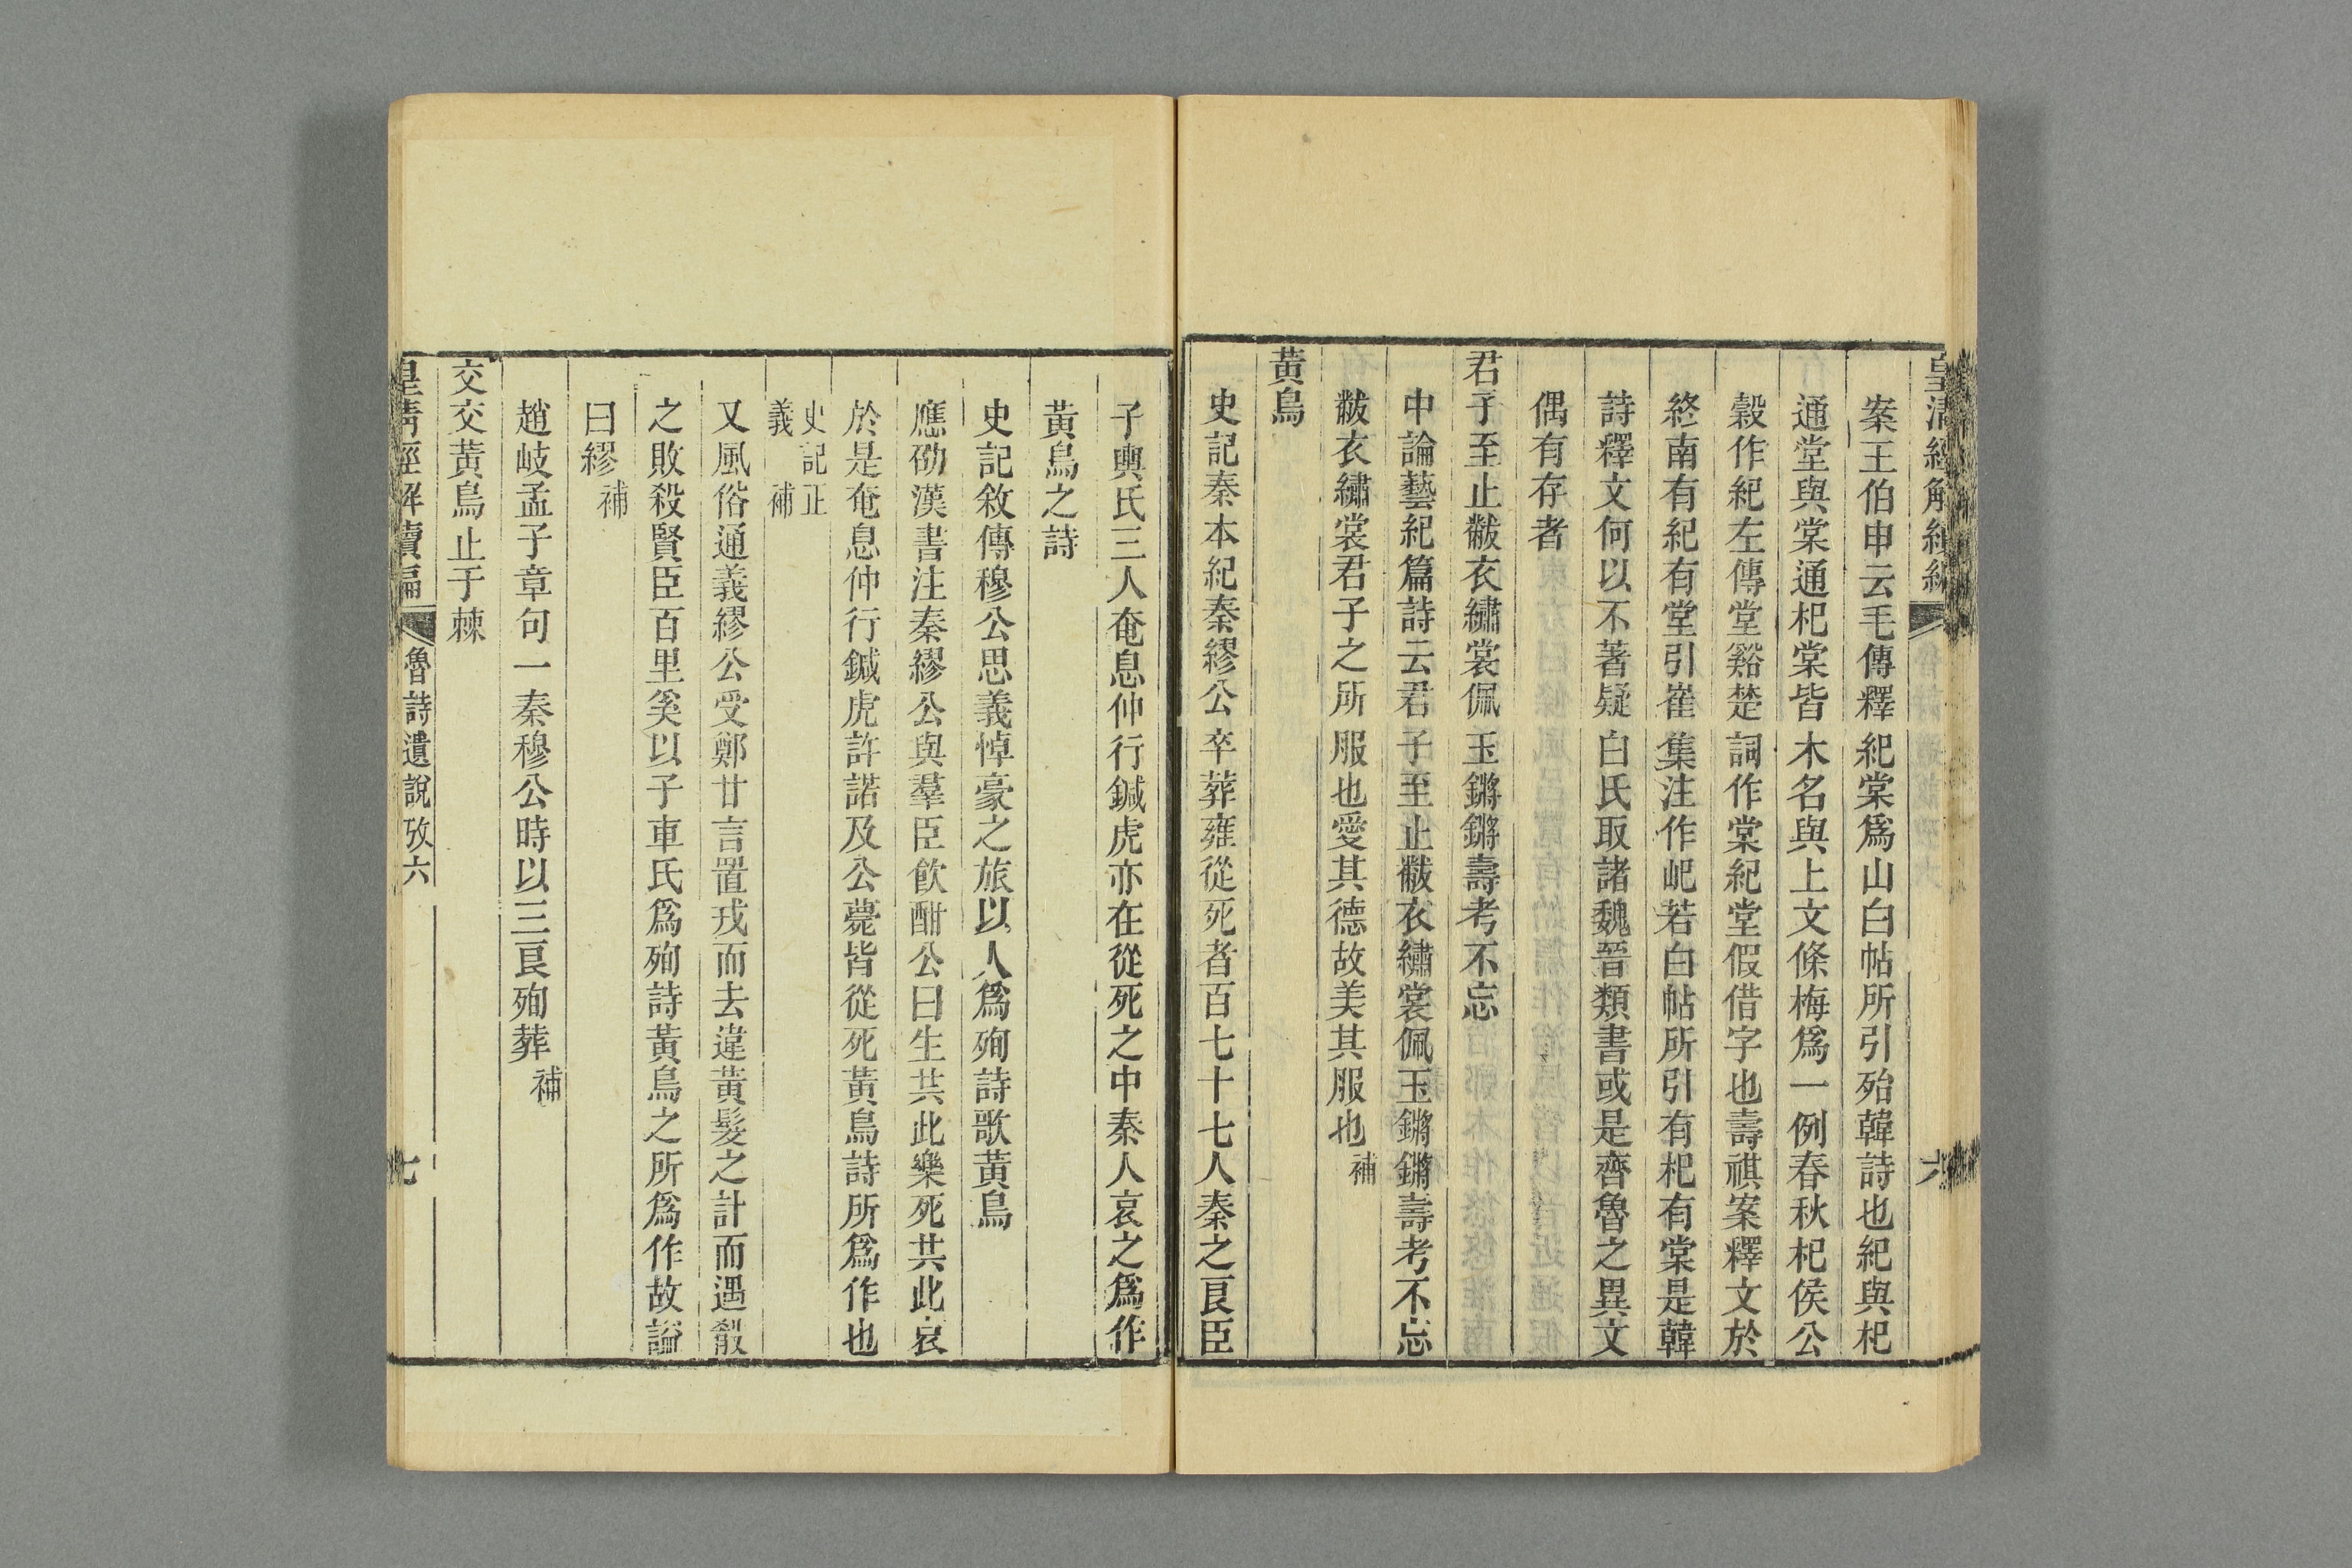 皇清經解續編
六
案王伯申云毛傳釋紀棠爲山白帖所引殆韓詩也紀與杞
通堂與棠通杞棠皆木名與上文條梅爲一例春秋杞侯公
穀作紀左傳堂谿楚詞作棠紀堂假借字也壽祺案釋文於
終南有紀有堂引崔集注作屺若白帖所引有杞有棠是韓
詩釋文何以不著疑白氏取諸魏晉類書或是齊魯之異文
偶有存者
君子至止黻衣繡裳佩玉鏘鏘壽考不忘
中論藝紀篇詩云君子至止黻衣繡裳佩玉鏘鏘壽考不忘
黻衣繡裳君子之所服也愛其德故美其服也補
黃鳥
史記秦本紀秦繆公卒葬雍從死者百七十七人秦之良臣
子輿氏三人奄息仲行鍼虎亦在從死之中秦人哀之爲作
黃鳥之詩
史記敘傳穆公思義悼豪之旅以人爲殉詩歌黃鳥
應劭漢書注秦繆公與羣臣飲酣公曰生共此樂死共此哀
於是奄息仲行鍼虎許諾及公薨皆從死黃鳥詩所爲作也
史記正
義補
又風俗通義繆公受鄭甘言置戎而去違黃髮之計而遇殽
之敗殺賢臣百里奚以子車氏爲殉詩黃鳥之所爲作故謚
曰繆補
趙岐孟子章句一秦穆公時以三良殉葬補
交交黃鳥止于棘
皇清經解續編
魯詩遺說攷六
七